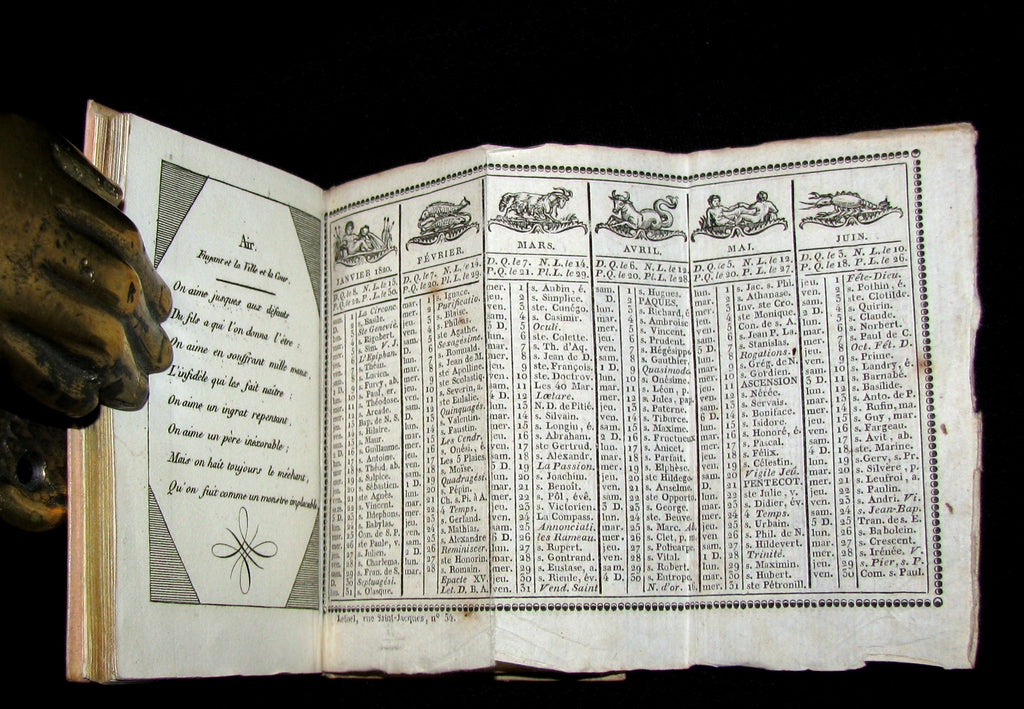 Air.
Fuyant et la Ville et la Cour.
On aime jusques aux défauts
Du fils a qui l'on donna l'être :
On aime en souffrant mille maux
L'infidèle qui les fait naître :
On aime un ingrat repentant,
On aime un père inéxorable ;
Mais on hait toujours le méchant,
Qu'on fuit comme un monstre implacable
JANVIER 1820.
D. Q. le 8. N. L. le 15.
P. Q. le 22. P. L. le 30.
La Circonc.
s. Basile.
Ste Genevie.
s. Rigobert.
s. Sim. V. J.
L'Epiphan.
s. Théau.
s. Lucien.
s. Furcy, ab.
s. Paul, er.
s. Théodose.
s. Arcade.
Bap. de N. S.
s. Hilaire.
s. Maur.
s. Guillaume.
s. Antoine.
s. Sulpice.
s. Sébastien.
ste Agnès.
s. Vincent.
s. Ildephons.
s. Babylas.
Con. de S. P.
ste Paule, v.
s. Julien.
s. Charlema.
s. Fran. de S.
Septuagési.
FÉVRIER.
D. Q. le 7. N. L. le 14.
P. Q. le 20. Pl. L. le 29.
s. Ignace.
Purificatio.
s. Blaise.
s. Philéas.
ste Agathe.
Sexagésime.
s. Romuald.
s. Jean de M.
ste Apolline
ste Scolastiq.
s. Severin.
ste Eulalie.
Quinquagés.
s. Valentin.
s. Faustin.
Les Cendr.
s. Onési., é.
Les 5 Plaies.
s. Moïse.
Quadragési.
s. Pépin.
Ch. s. P. à A.
4 Temps.
s. Gerland.
s. Mathias.
s. Alexandre
Reminiscer.
ste Honorin.
s. Romain.
Epacte XV.
Let. D. B, A.
MARS.
D. Q. le 7. N. L. le 14.
P. Q. le 21. Pl. L. le 29.
mer. 1 s. Aubin, é.
2 s. Simplice.
3 ste. Cunégo.
4 s. Casimir.
5 Oculi.
6 ste. Colette.
7 s. Th. d'Aq.
8 s. Jean de D.
9 ste François.
10 s. Doctrov.
11 Les 40 Mar.
12 Lætare.
13 N. D. de Pitié.
14 s. Silvain.
15 s. Longin, é.
16 s. Abraham.
17 ste Gertrud.
18 s. Alexandr.
19 La Passion.
20 s. Joachim.
21 s. Benoît.
22 s. Pôl, évê.
23 s. Victorien
24 La Compass.
25 Annonciati.
26 les Rameau.
27 s. Rupert.
28 s. Gontrand.
29 s. Eustase, a.
30 s. Rieule, év.
31 Vend. Saint
AVRIL.
D. Q. le 6. N. L. le 12.
P. Q. le 20. Pl. L. le 28.
sam. 1 s. Hugues.
2 PAQUES.
3 s. Richard, é
4 s. Ambroise
5 s. Vincent.
6 s. Prudent.
7 s. Hégésipp
8 s. Gauthier.
9 Quasimodo
10 s. Onésime.
11 s. Léon, p.
12 s. Jules, pap.
13 s. Paterne.
14 s. Tiburce.
15 s. Maxime.
16 s. Fructueux
17 s. Anicet.
18 s. Parfait.
19 s. Elphèse.
20 ste Hildego.
21 s. Anselme
22 ste Opportu.
23 s. George.
24 ste Beuve.
25 s. Marc. Ab.
26 s. Clet, p. m.
27 s. Policarpe.
28 s. Vital.
29 s. Robert.
30 s. Eutrope.
N. d'or. 16.
MAI.
D. Q. le 5. N. L. le 12.
P. Q. le 20. P. L. le 27.
lun. 1 s. Jac. s. Phi.
2 s. Athanase.
3 Inv. ste Cro.
4 ste Monique.
5 Con. de s. A.
6 s. Jean P. La.
7 s. Stanislas.
8 Rogations.
9 s. Grég. de N.
10 s. Gordien.
11 ASCENSION
12 s. Nérée.
13 s. Servais.
14 s. Boniface.
15 s. Isidore.
16 s. Honoré, é.
17 s. Pascal.
18 s. Félix.
19 s. Célestin.
20 Vigile Jeû.
21 PENTECOT.
22 ste Julie, v.
23 s. Didier, év.
24 4 Temps.
25 s. Urbain.
26 s. Phil. de N.
27 s. Hildevert.
28 Trinité.
29 s. Maximin.
30 s. Hubert.
31 ste Pétronill.
JUIN.
D. Q. le 3. N. L. le 10.
P. Q. le 18. P. L. le 26.
jeu. 1 Fête-Dieu.
2 s. Pothin, é.
3 ste. Clotilde.
4 s. Quirin.
5 s. Claude.
6 s. Norbert.
7 s. Paul de C.
8 Oct. Fêt. D.
9 s. Prime.
10 s. Landry, é.
11 s. Barnabé.
12 s. Basilide.
13 s. Anto. de P.
14 s. Rufin, ma.
15 s. Guy, mar.
16 s. Fargeau.
17 s. Avit, ab.
18 ste. Marine.
19 s. Gerv, s. Pr.
20 s. Silvère, p.
21 s. Leufroi, a.
22 s. Paulin.
23 s. Andri. Vi.
24 s. Jean-Bap.
25 Tran. de s. E.
26 s. Babolein.
27 s. Crescent.
28 s. Irénée, V.
29 s. Pier, s. P.
30 Com. s. Paul.
rue Saint-Jacques, n° 54.